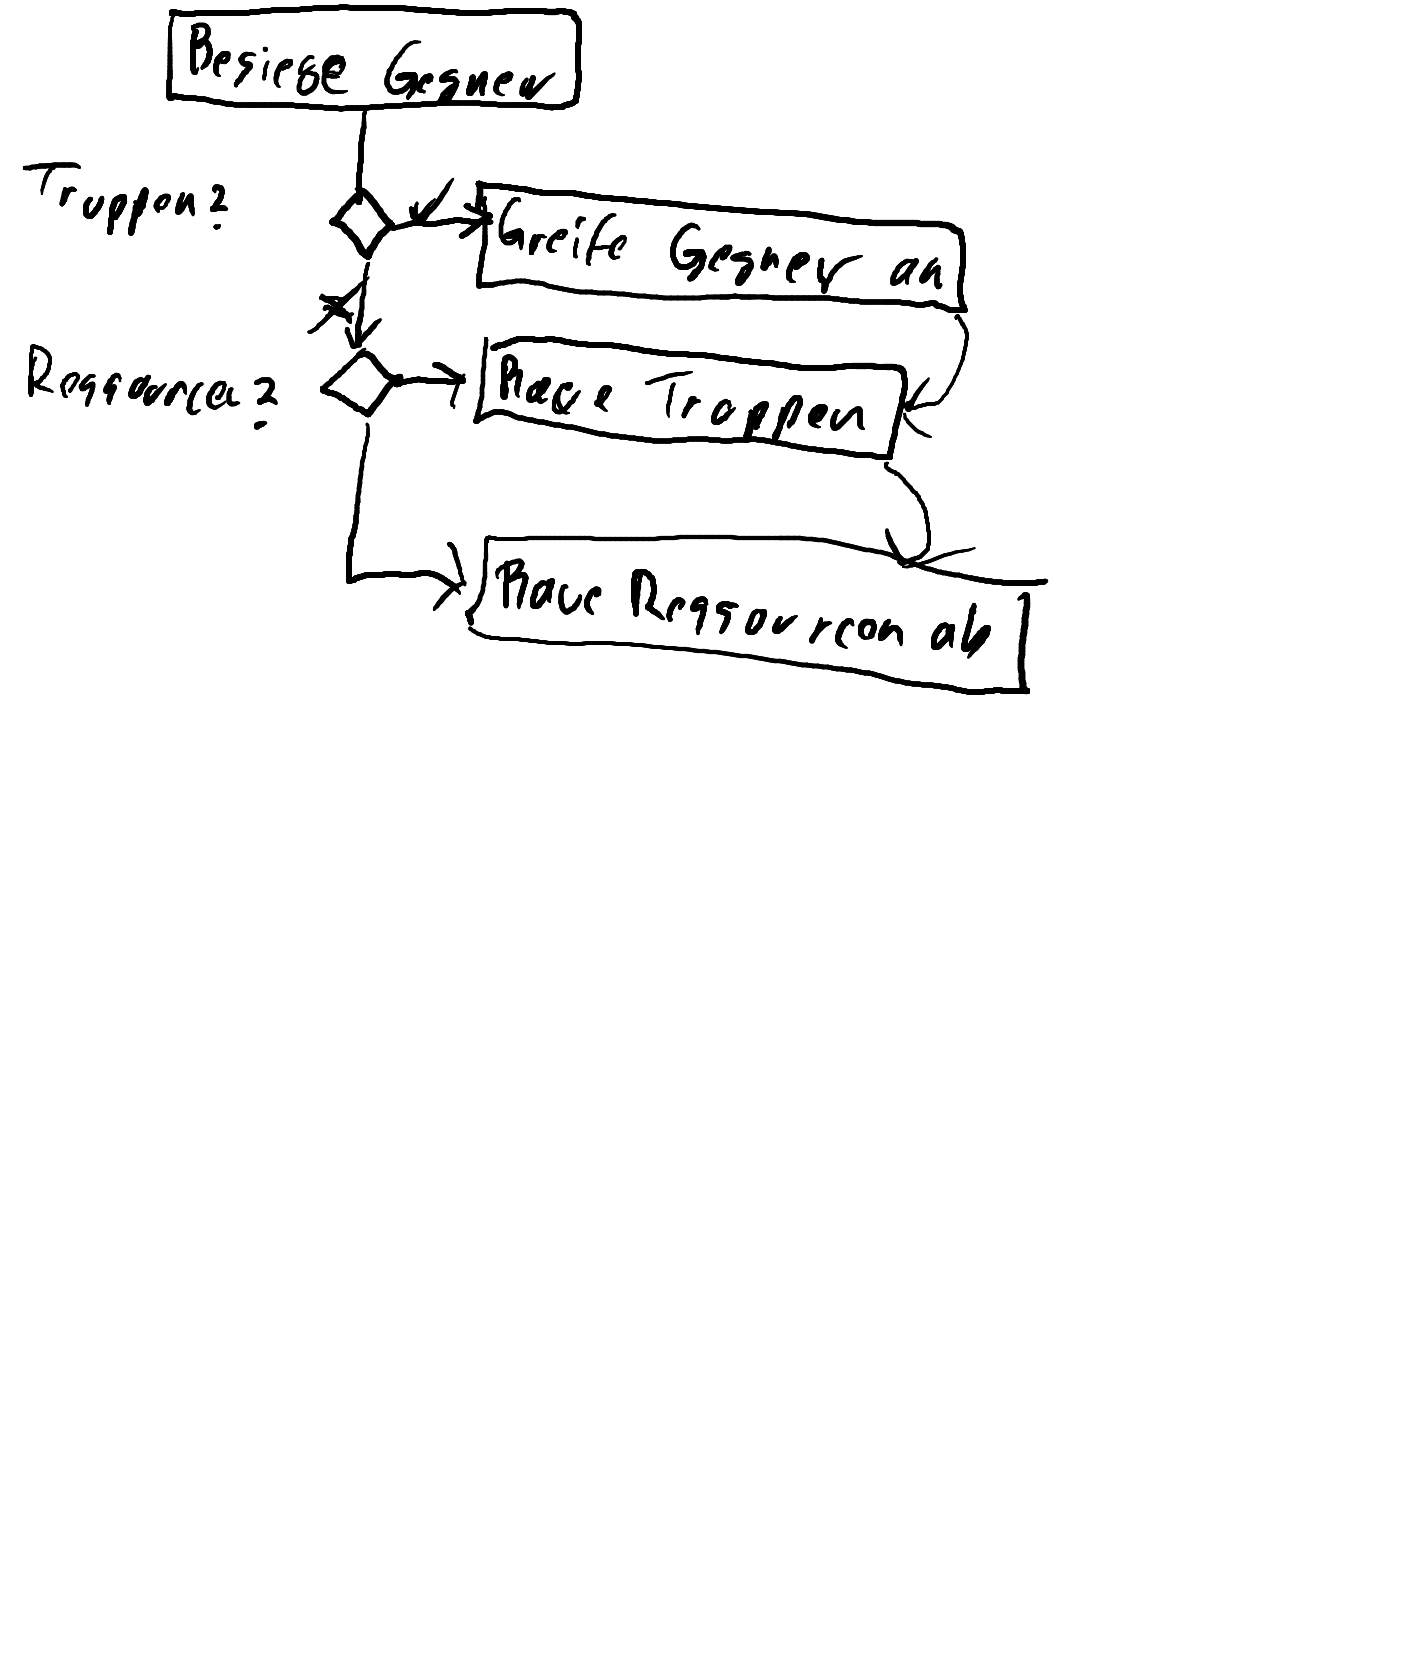 Besiege Gegner
Truppen?
Greife Gegner an
Ressourcen?
Baue Truppen
Baue Ressourcen ab